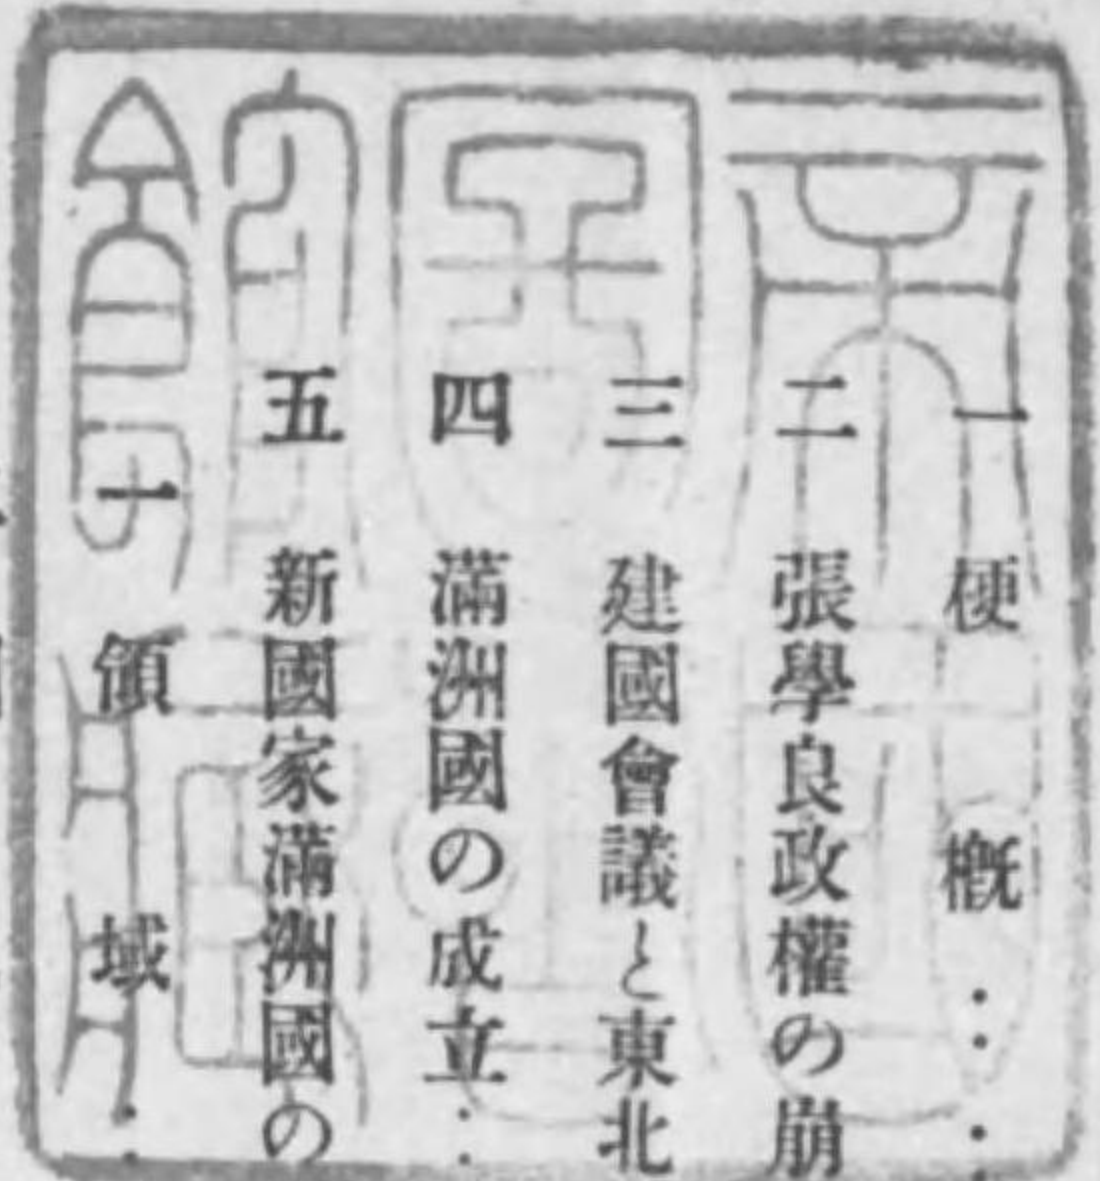 一 梗概‥‥
二 張學良政權の崩
三 建國會議と東北
四 滿洲國の成立‥
五 新國家滿洲國の
一 領域‥